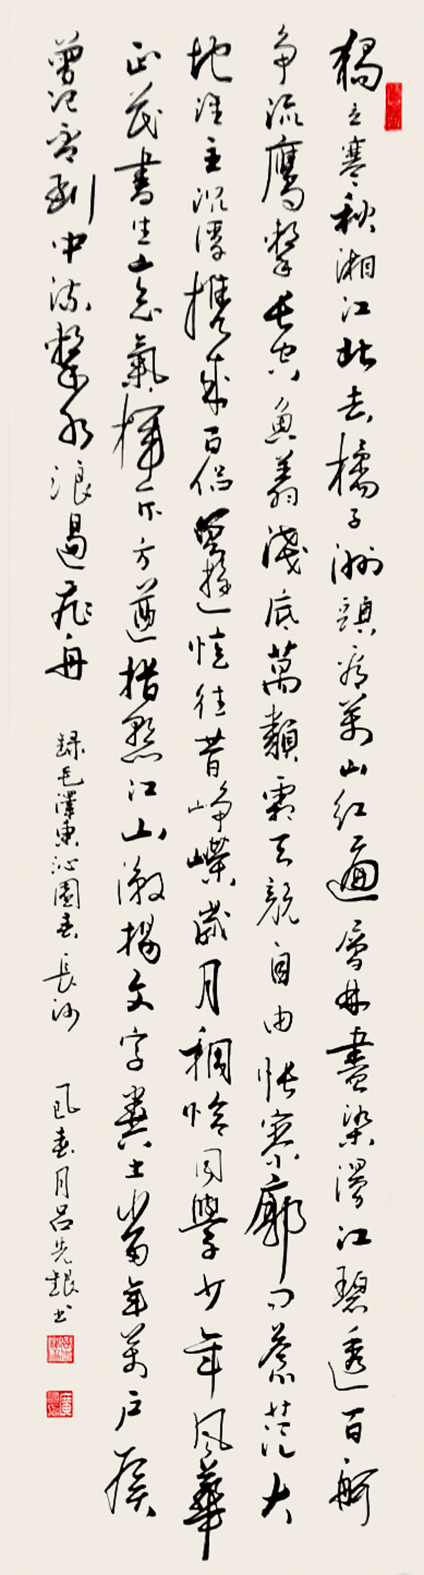 獨立寒秋湘江北去橘子洲頭看萬山紅遍層林盡染漫江碧透百舸
爭流鷹擊長空魚翔淺底萬類霜天競自由悵寥廓問蒼茫大
地誰主沉浮攜來百侶曾遊憶往昔崢嶸歲月稠恰同學少年風華
正茂書生意氣揮斥方遒指點江山激揚文字糞土當年萬戶侯
曾記否到中流擊水浪遏飛舟 錄毛澤東沁園春長沙 春月呂先书